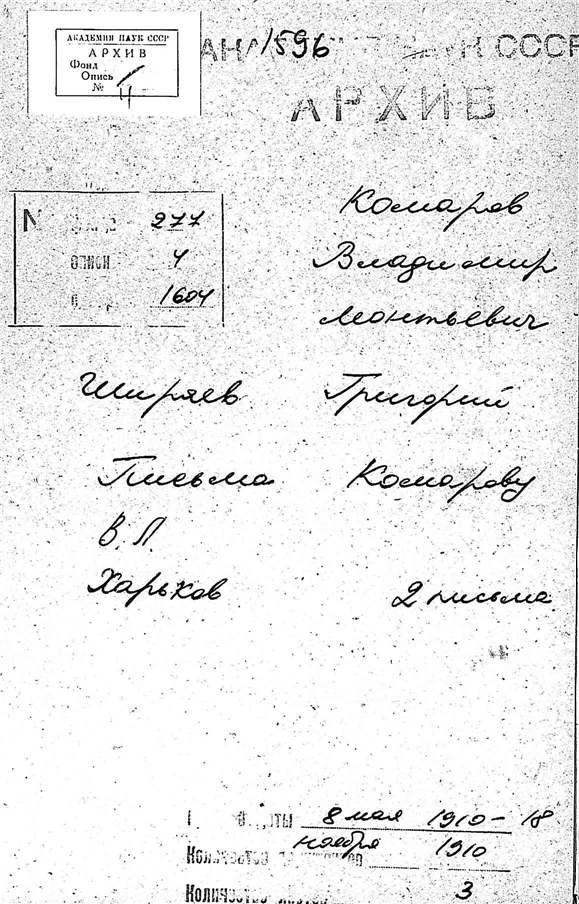 АКАДЕМИЯ НАУК СССР
АРХИВ
Фонд
Опись 1
№ 4
1596
СССР
АРХИВ
277
4
1604
Комаров
Владимир
Леонтьевич
Ширяев Григорий
Письма Комарову
В. Л.
Харьков 2 письма
8 мая 1910 – 18
ноября 1910
Количество
3